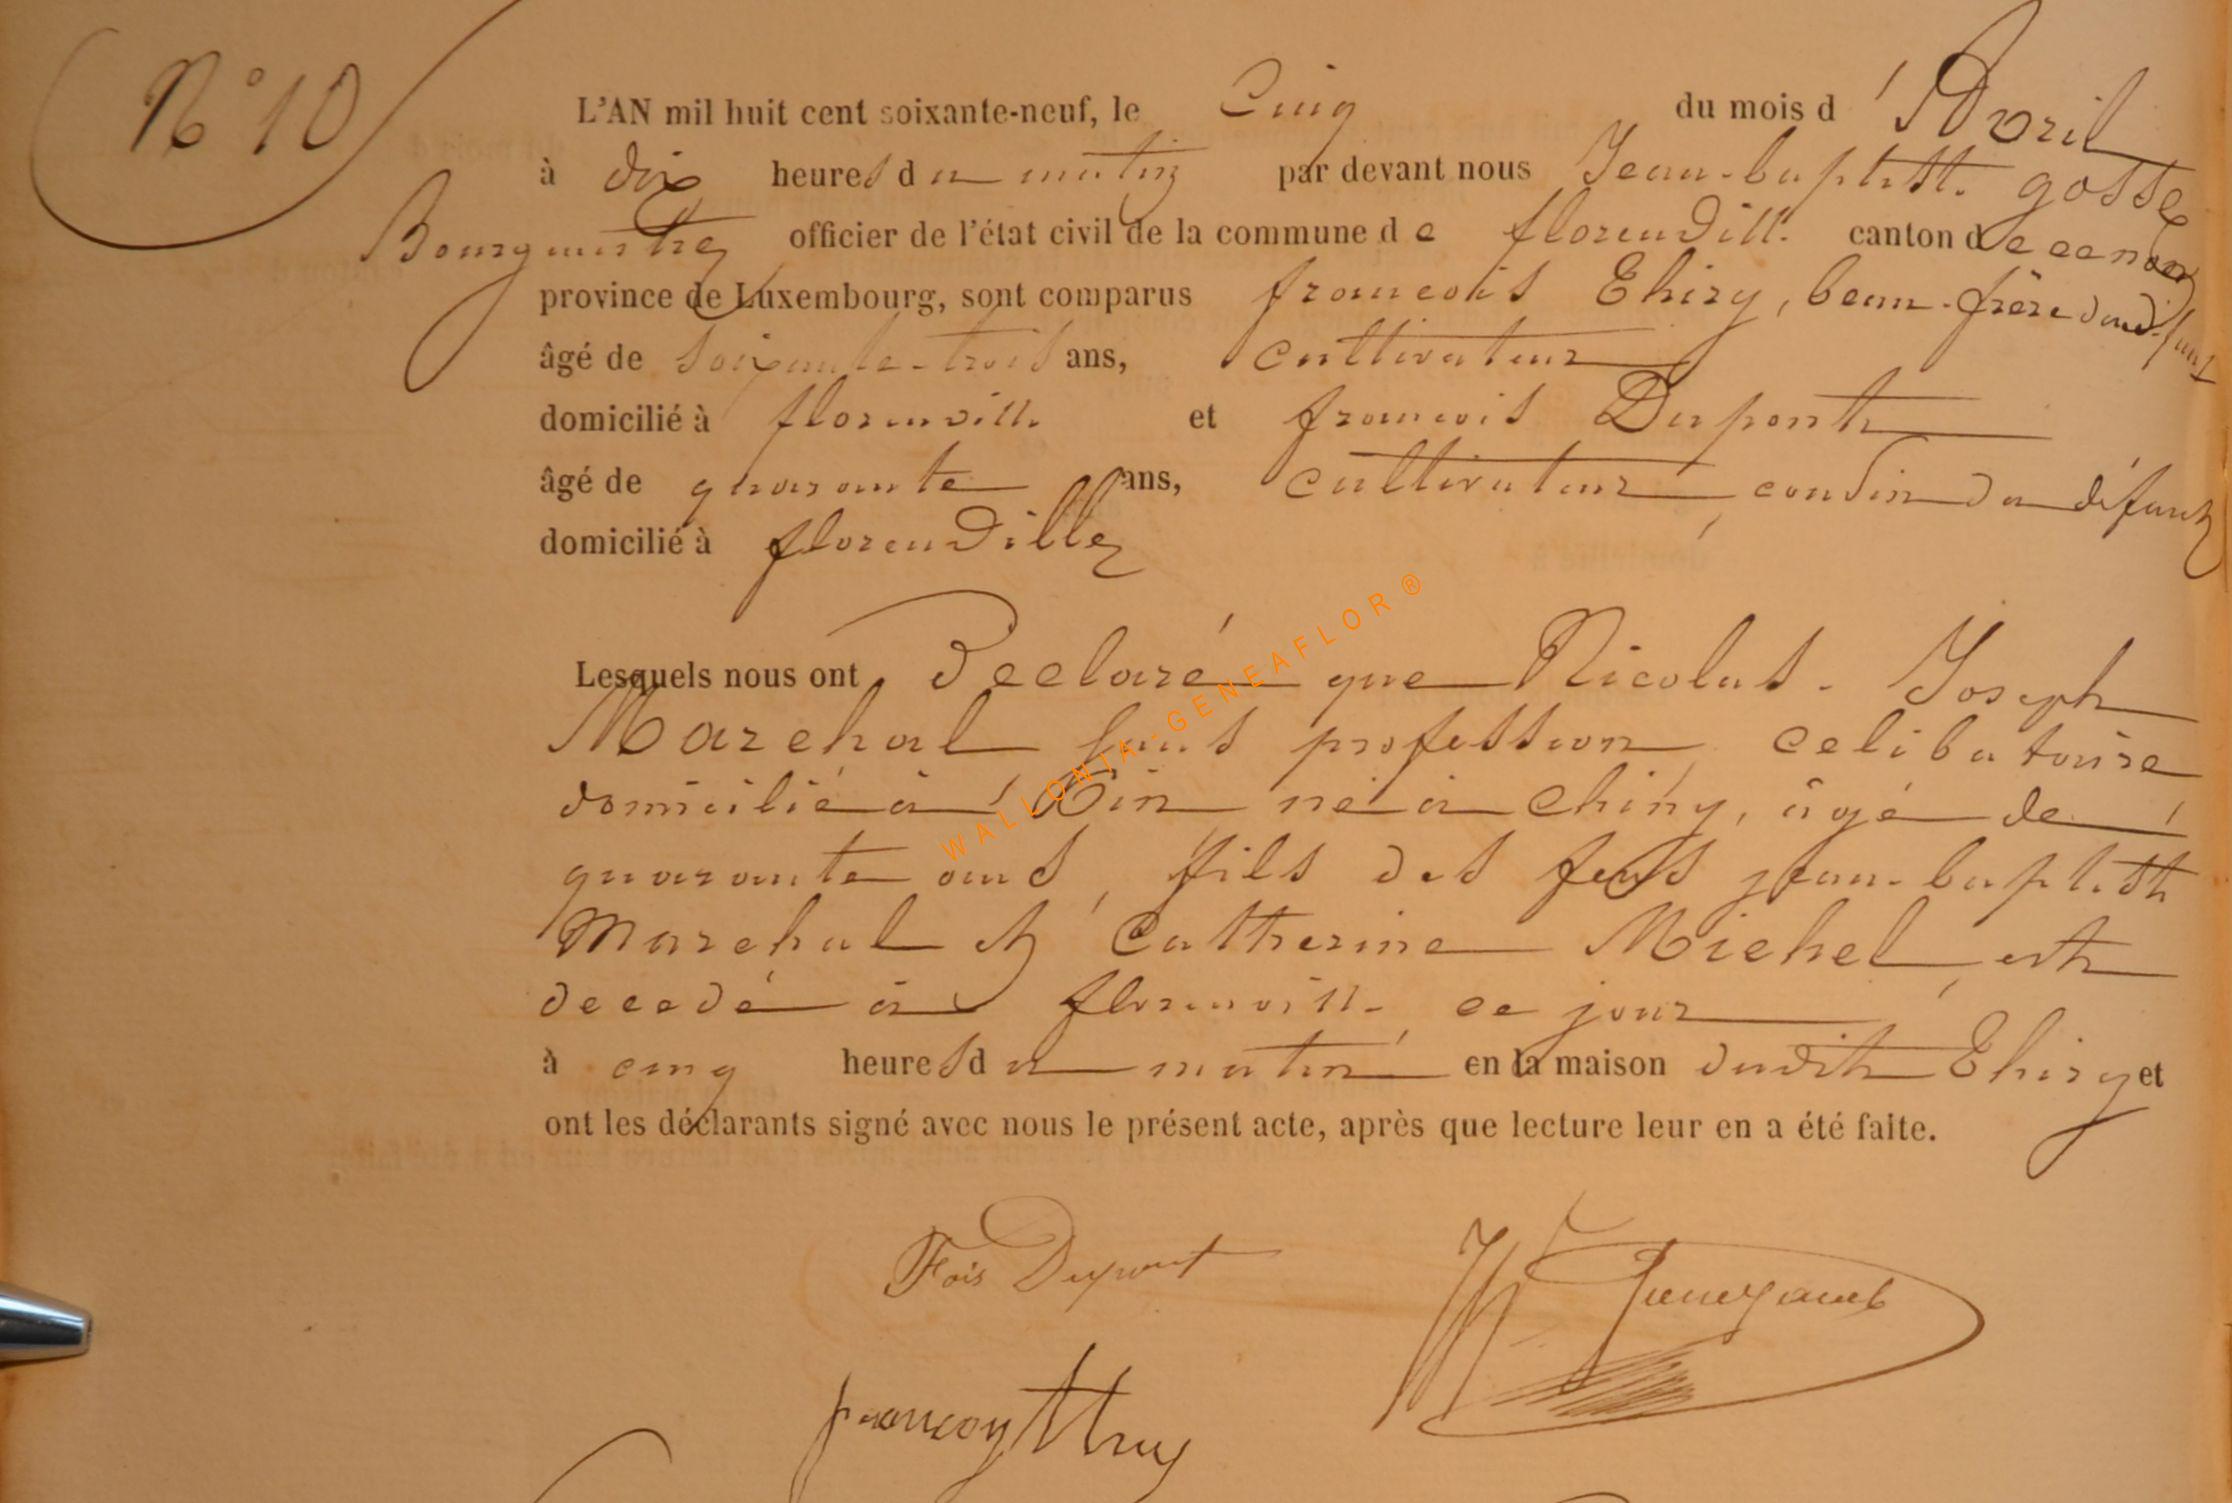 N° 10
L'AN mil huit cent soixante-neuf, le Cinq du mois d'Avril
à dix heures du matin par devant nous Jean-baptiste gosse
Bourgmestre officier de l'état civil de la commune de florenville canton de
province de Luxembourg, sont comparus francois Thiry, beau-frère du défunt
âgé de soixante-trois ans, cultivateur
domicilié à florenville et francois Dupont
âgé de quarante ans, cultivateur, cousin du défunt
domicilié à florenville
Lesquels nous ont declaré que Nicolas-Joseph
Marchal sans profession, celibataire
domicilié à né à Chiny, âgé de
quarante ans, fils des feus jean-baptiste
Marchal et Catherine Michel, est
decedé à florenville ce jour
à cinq heures du matin en la maison dudit Thiry et
ont les déclarants signé avec nous le présent acte, après que lecture leur en a été faite.
Fois Dupont
francoy thiry
WALLONIA-GENEAFLOR ®